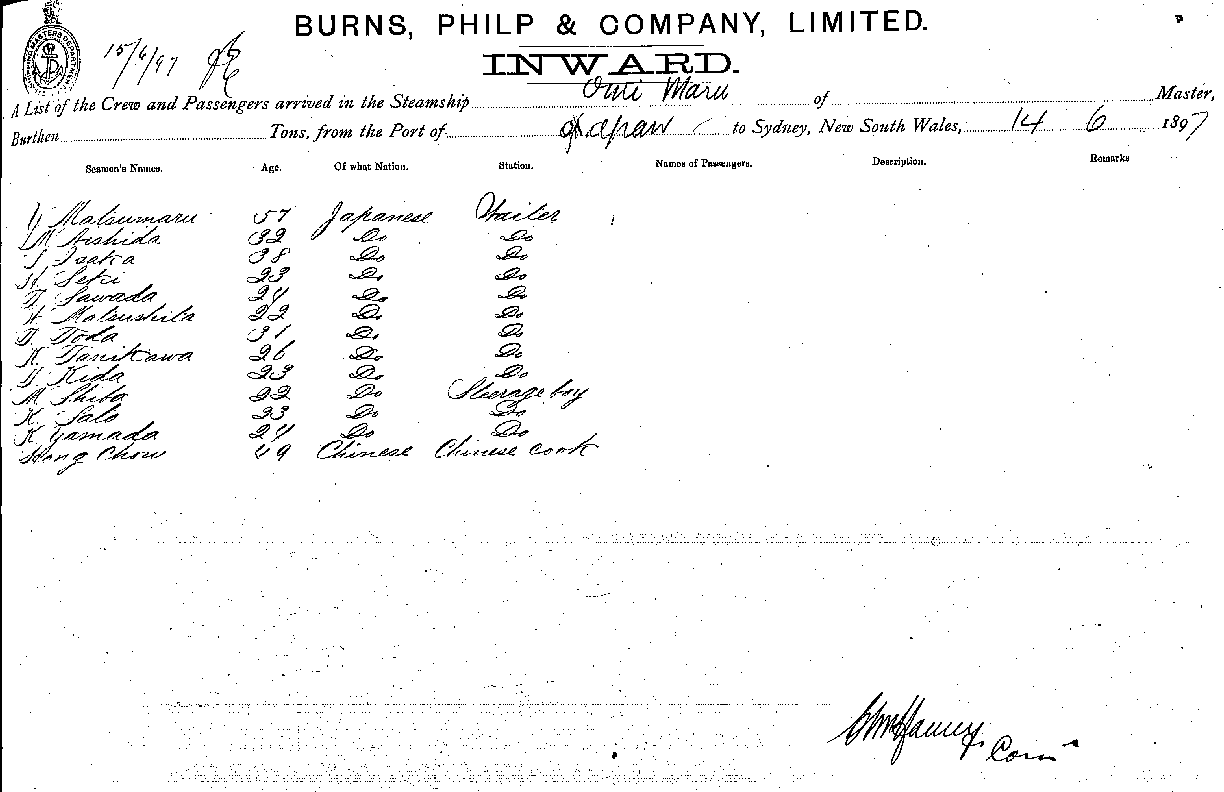 BURNS, PHILP & COMPANY, LIMITED.
15/6/97
INWARD.
A List of the Crew and Passengers arrived in the Steamship Omi Maru of Master,
Burthen Tons, from the Port of Japan to Sydney, New South Wales, 14 6 1897
Seamen's Names. Age. Of what Nation. Station. Names of Passengers. Description. Remarks
Y Matsumaru 57 Japanese Waiter
M Nishida 32 Do Do
I Isaka 38 Do Do
H Seki 23 Do Do
T Sawada 24 Do Do
H Matsushita 22 Do Do
T Toda 31 Do Do
K Tanikawa 26 Do Do
T Kida 23 Do Do
M Shiba 22 Do Steerage boy
K Sato 23 Do Do
K Yamada 24 Do Do
Hong Chow 49 Chinese Chinese cook